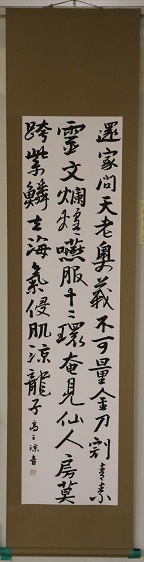 還家問天老奥義不可量金刀割青素
靈文爛煌嚥服十二環奄見仙人房莫
跨紫鱗去海氣侵肌涼龍子